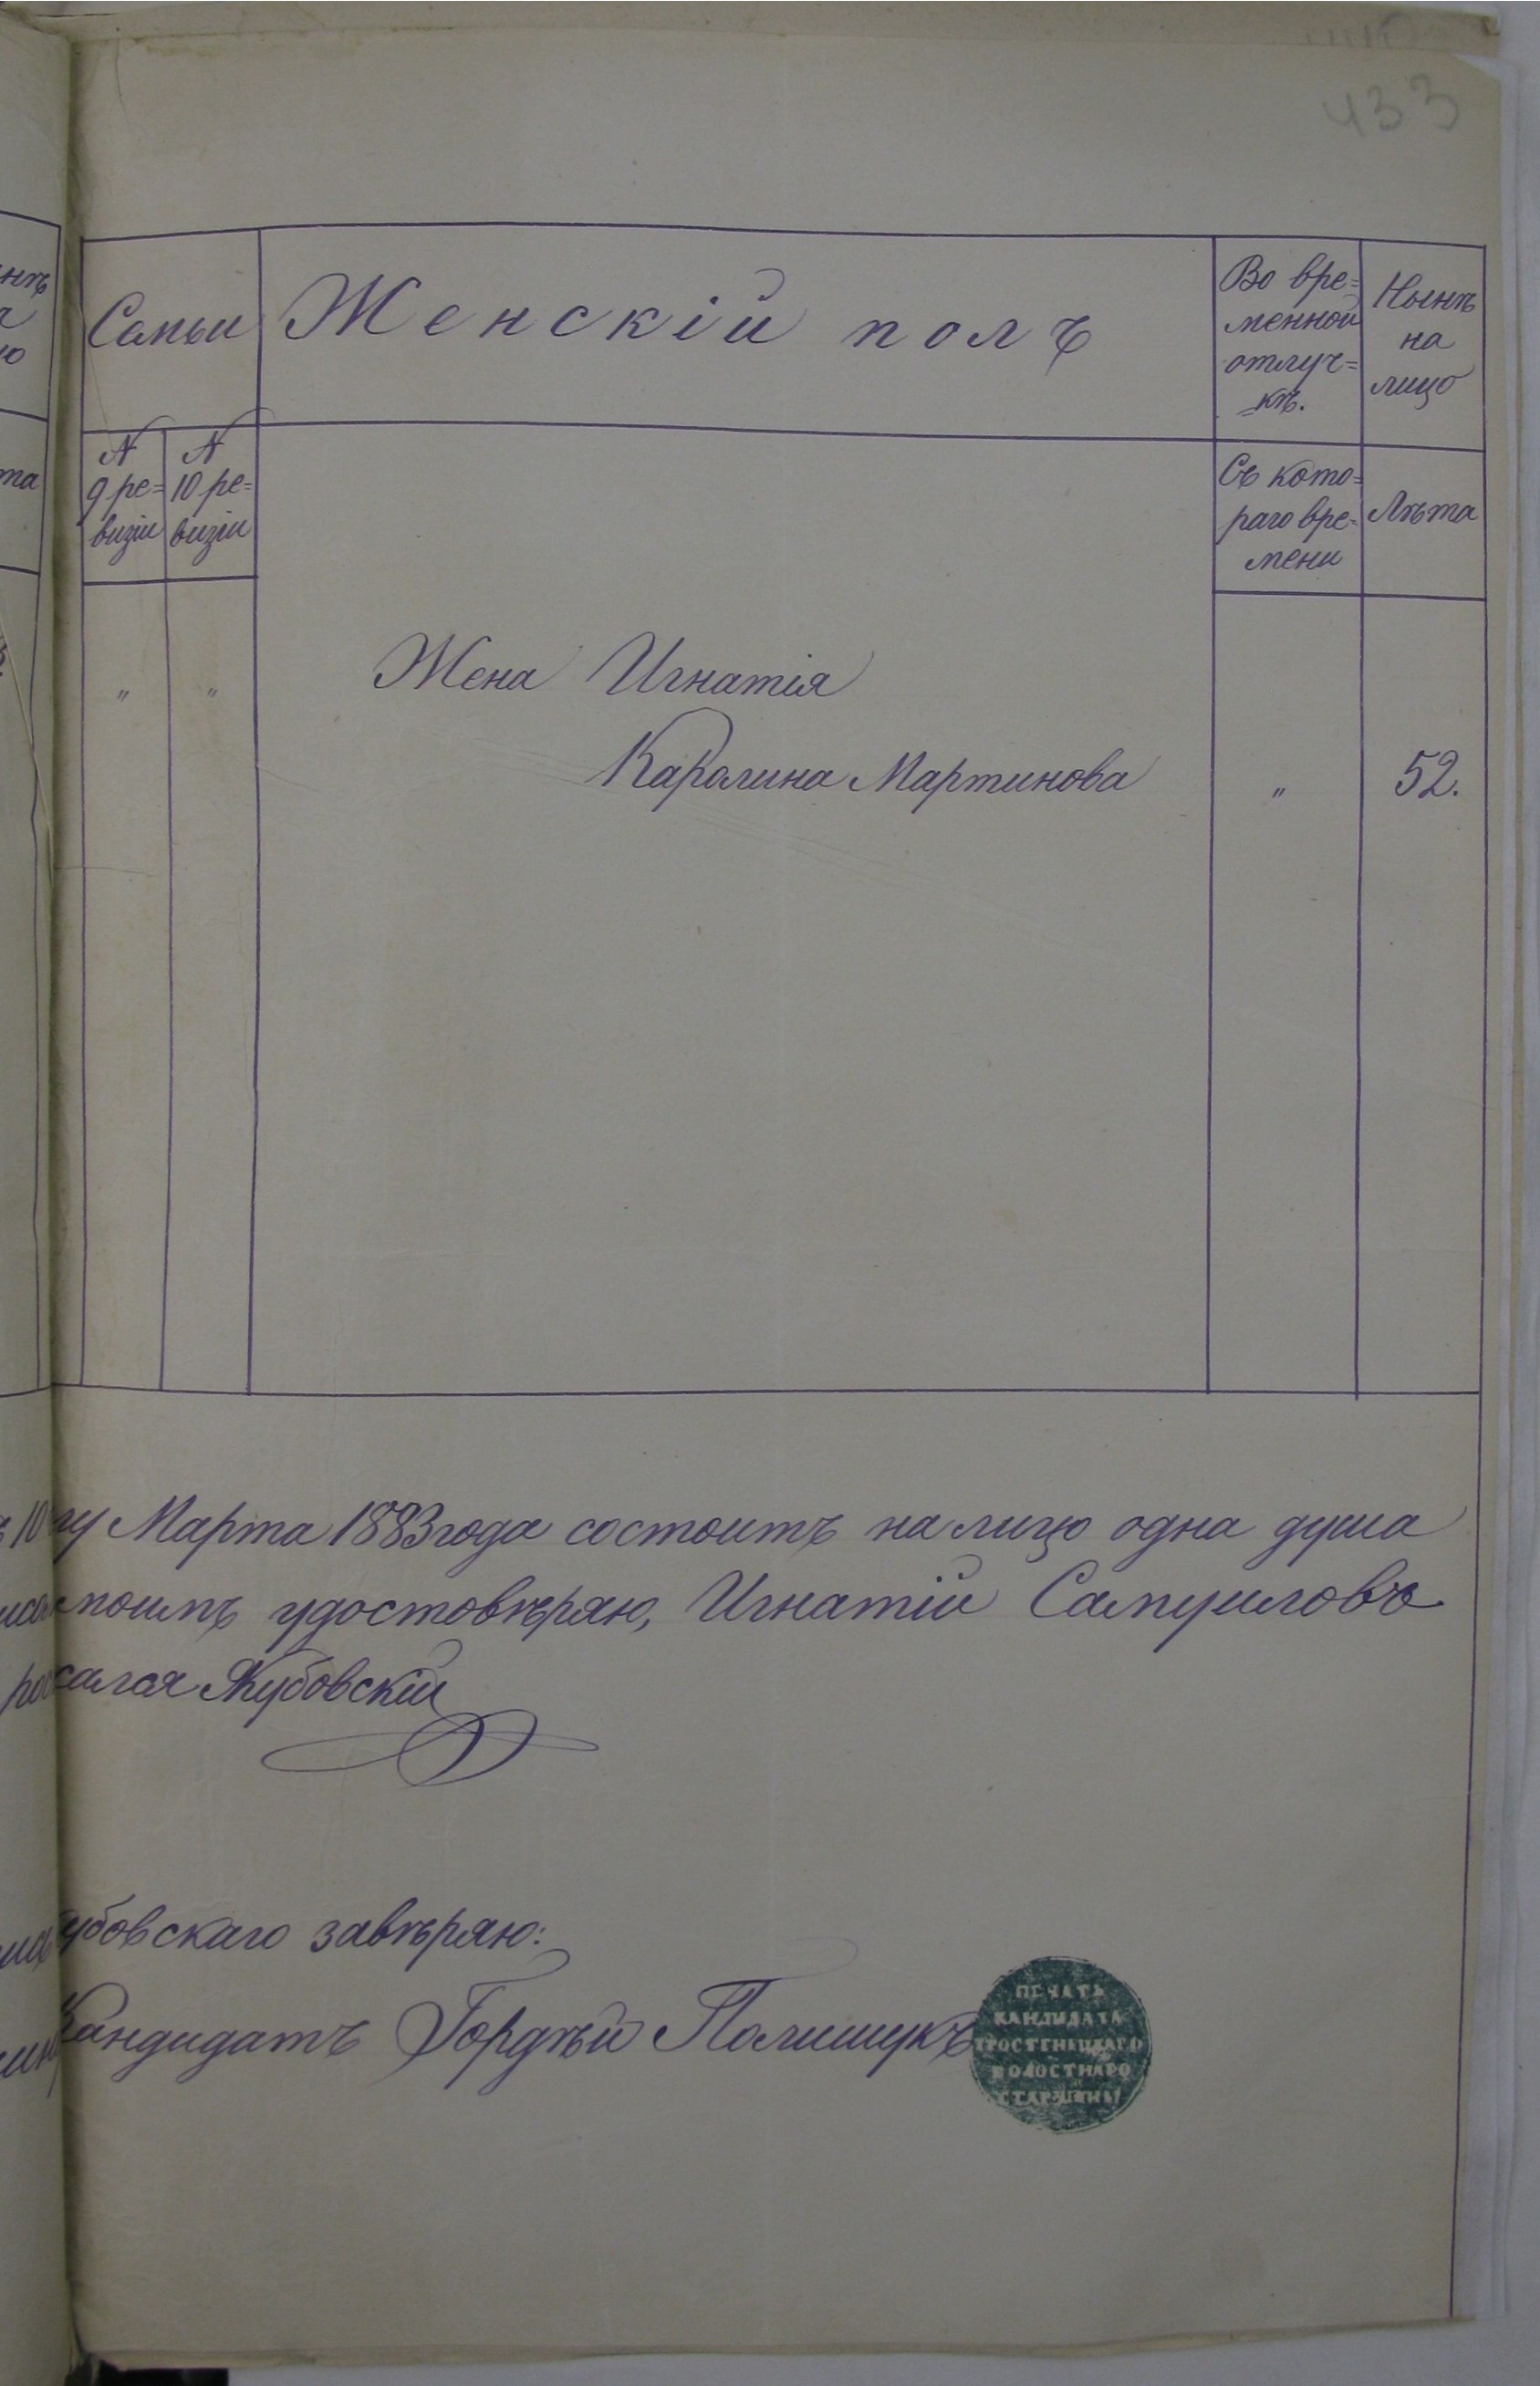 433
Семьи
Женскій полъ
Во вре=
менной
отлуч=
=кѣ.
Нынѣ
на
лицо
№
9 ре=
визіи
№
10 ре=
визіи
Съ кото=
раго вре=
мени
Лѣта
" "
Жена Игнатія
Каролина Мартинова " 52.
10 му Марта 1883 года состоитъ на лицо одна душа
удостовѣряю, Игнатій Самуиловъ
Якубовскій
убовскаго завѣряю:
Кандидатъ Гордѣй Полищукъ
ПЕЧАТЬ
КАНДИДАТА
ТРОСТЕНЕЦКАГО
ВОЛОСТНАГО
СТАРШИНЫ